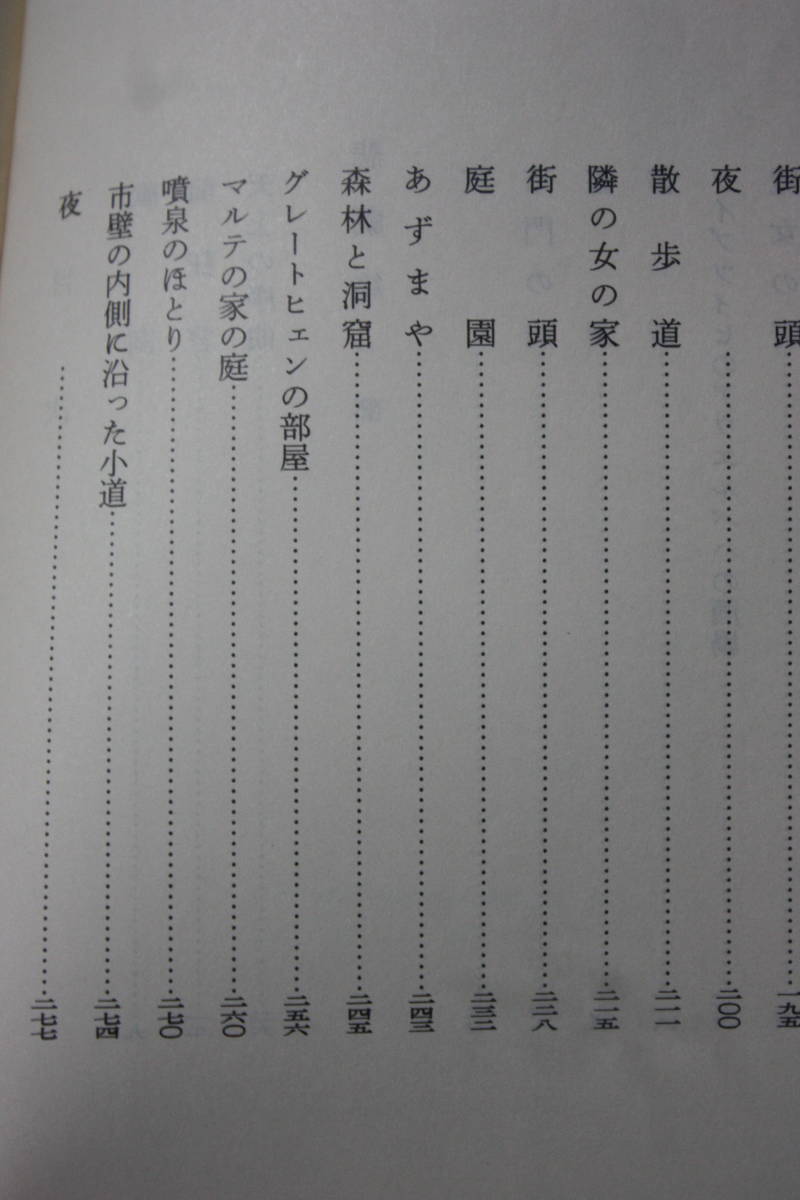 街頭……一九五
夜……二〇〇
散歩道……二一一
隣の女の家……二一五
街頭……二二八
庭園……二三二
あずまや……二四三
森林と洞窟……二四五
グレートヒェンの部屋……二五六
マルテの家の庭……二六〇
噴泉のほとり……二七〇
市壁の内側に沿った小道……二七四
夜……二七七